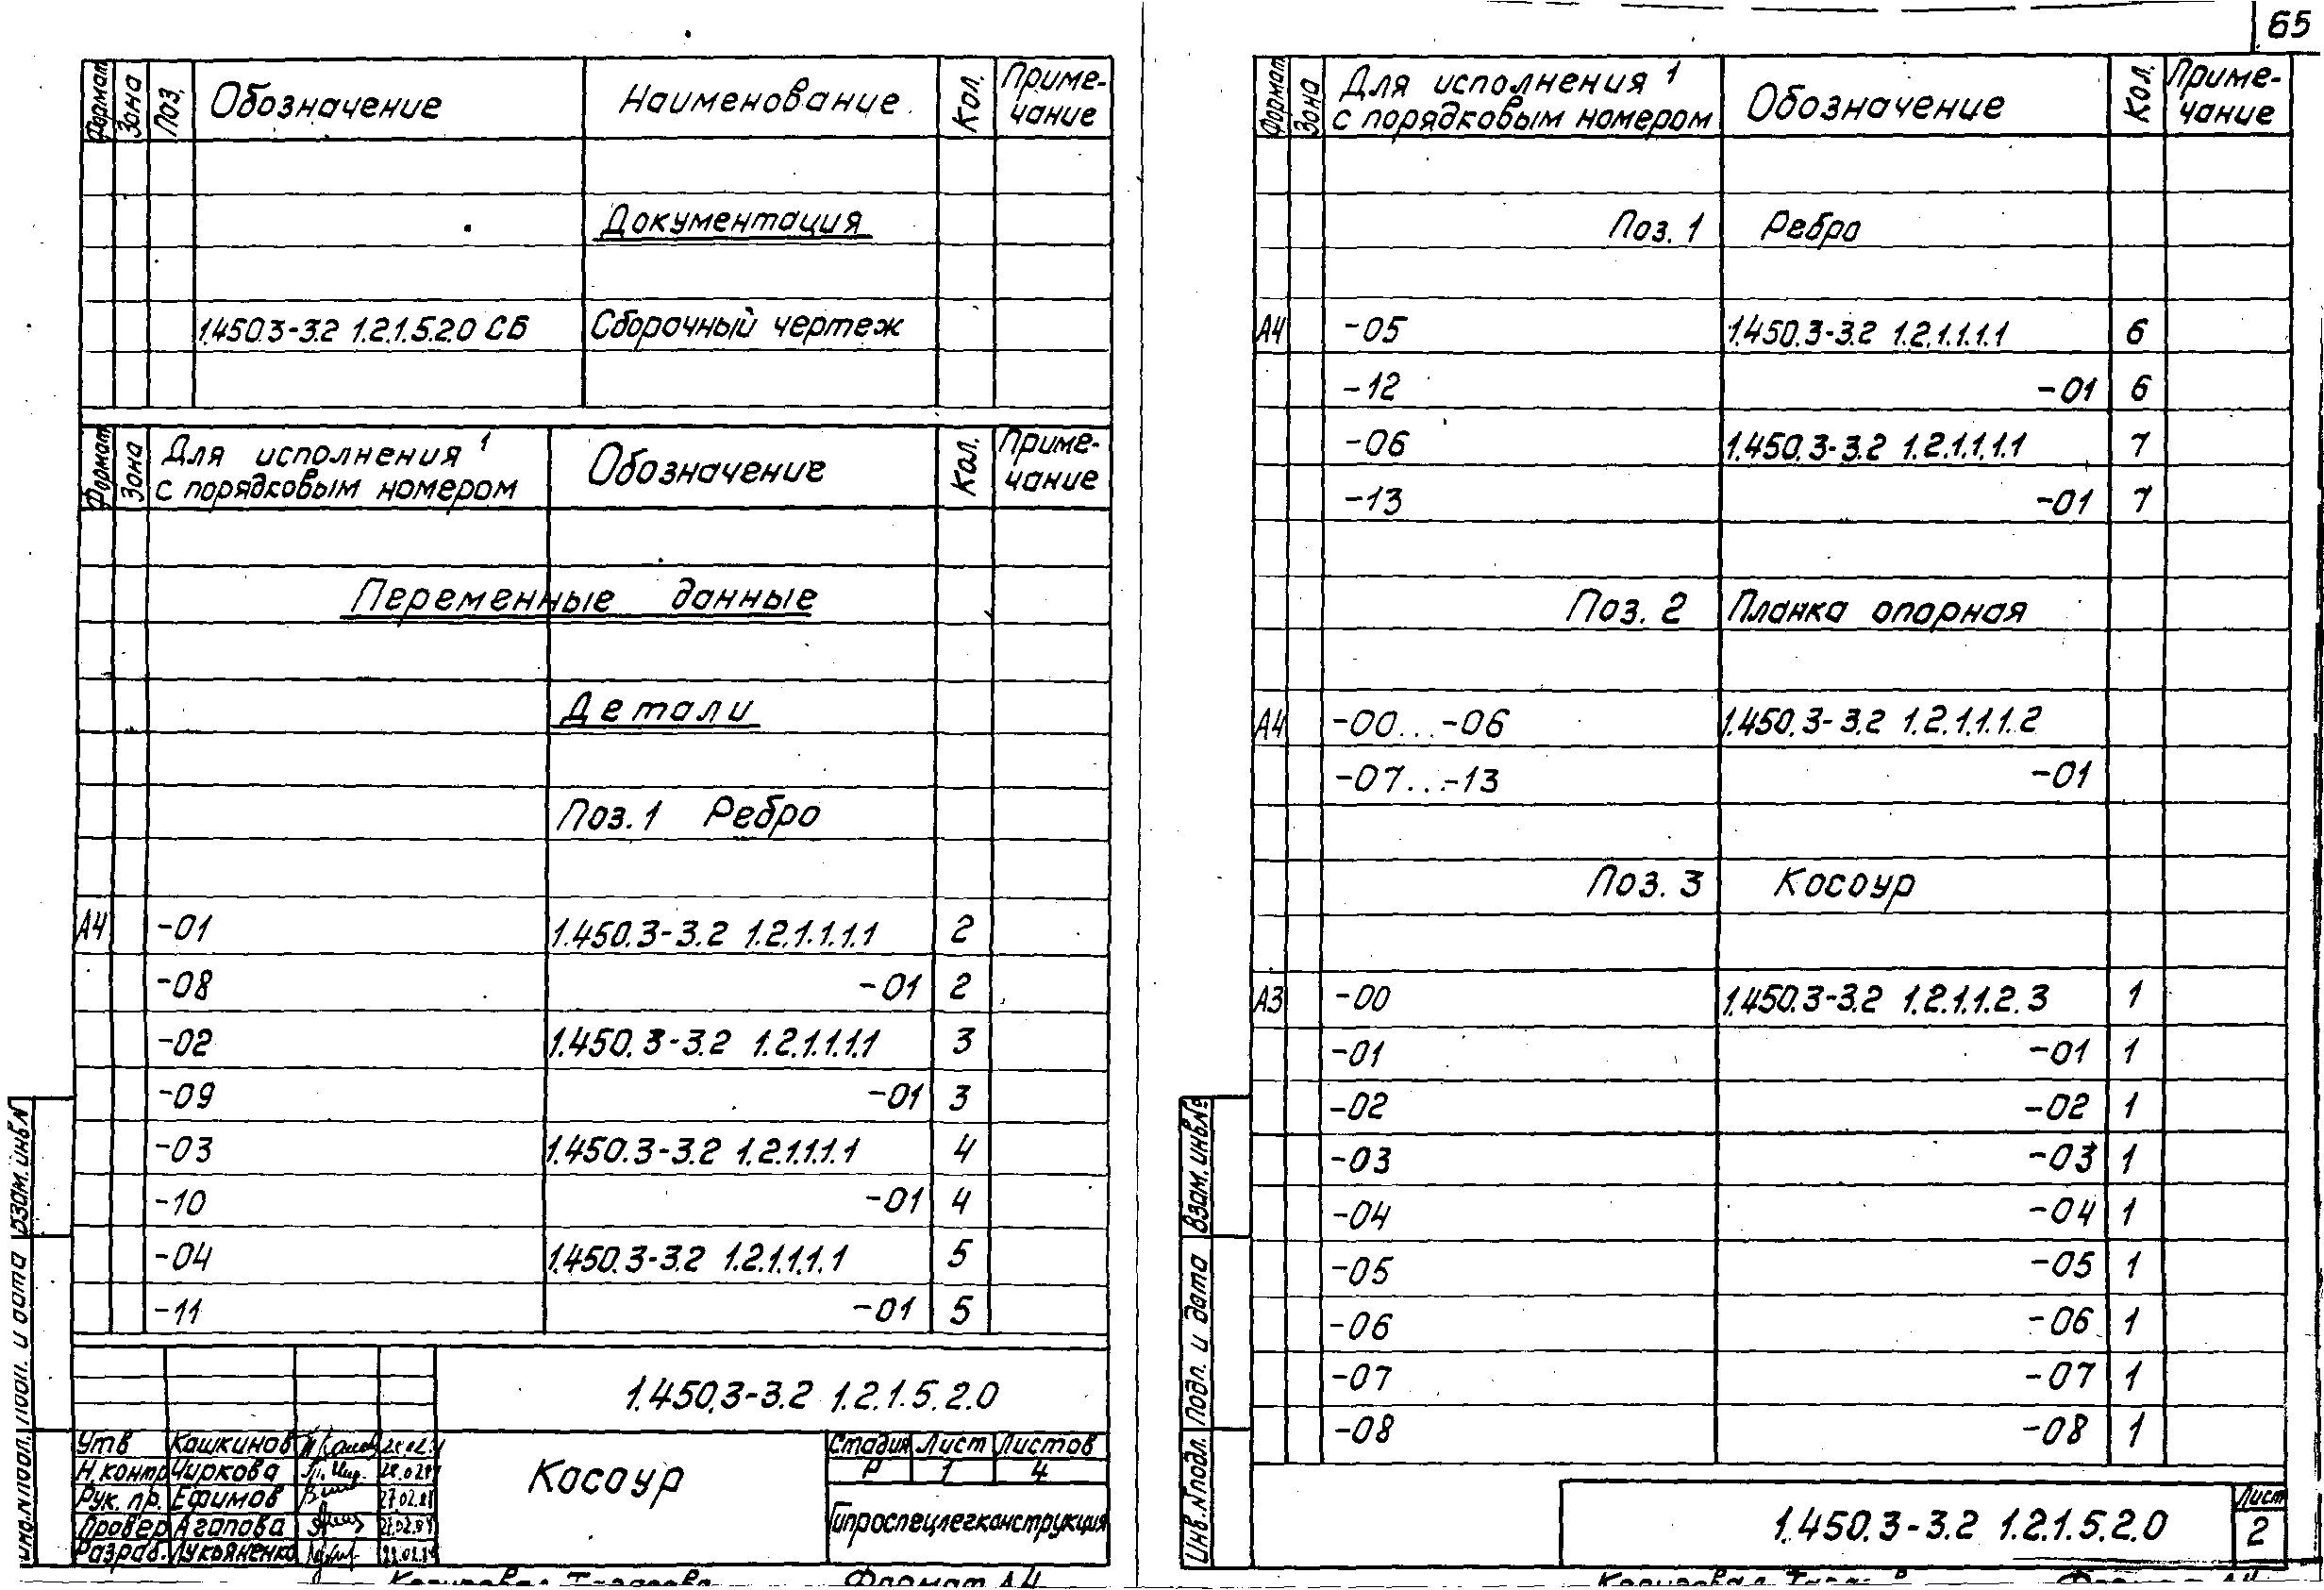 65
Формат Зона Поз. Обозначение Наименование Кол. Приме-
чание
Документация
1.450.3-3.2 1.2.1.5.2.0 СБ Сборочный чертеж
Формат Зона Для исполнения 1
с порядковым номером Обозначение Кол. Приме-
чание
Переменные данные
Детали
Поз. 1 Ребро
А4 -01 1.450.3-3.2 1.2.1.1.1.1 2
-08 -01 2
-02 1.450.3-3.2 1.2.1.1.1.1 3
-09 -01 3
-03 1.450.3-3.2 1.2.1.1.1.1 4
-10 -01 4
-04 1.450.3-3.2 1.2.1.1.1.1 5
-11 -01 5
1.450.3-3.2 1.2.1.5.2.0
Утв Кашкинов
Н.контр Чиркова
Рук. пр. Ефимов 27.02.
Провер Агапова
Разраб. Лукьяненко
Косоур
Стадия Лист Листов
Р 1 4
Гипроспецлегконструкция
Формат А4
Взам. инв.N
Подп. и дата
Инв.N подл.
Формат Зона Для исполнения 1
с порядковым номером Обозначение Кол. Приме-
чание
Поз. 1 Ребро
А4 -05 1.450.3-3.2 1.2.1.1.1.1 6
-12 -01 6
-06 1.450.3-3.2 1.2.1.1.1.1 7
-13 -01 7
Поз. 2 Планка опорная
А4 -00...-06 1.450.3-3.2 1.2.1.1.1.2
-07...-13 -01
Поз. 3 Косоур
А3 -00 1.450.3-3.2 1.2.1.1.2.3 1
-01 -01 1
-02 -02 1
-03 -03 1
-04 -04 1
-05 -05 1
-06 -06 1
-07 -07 1
-08 -08 1
1.450.3-3.2 1.2.1.5.2.0
Лист
2
Взам. инв.№
Подп. и дата
Инв.N подл.